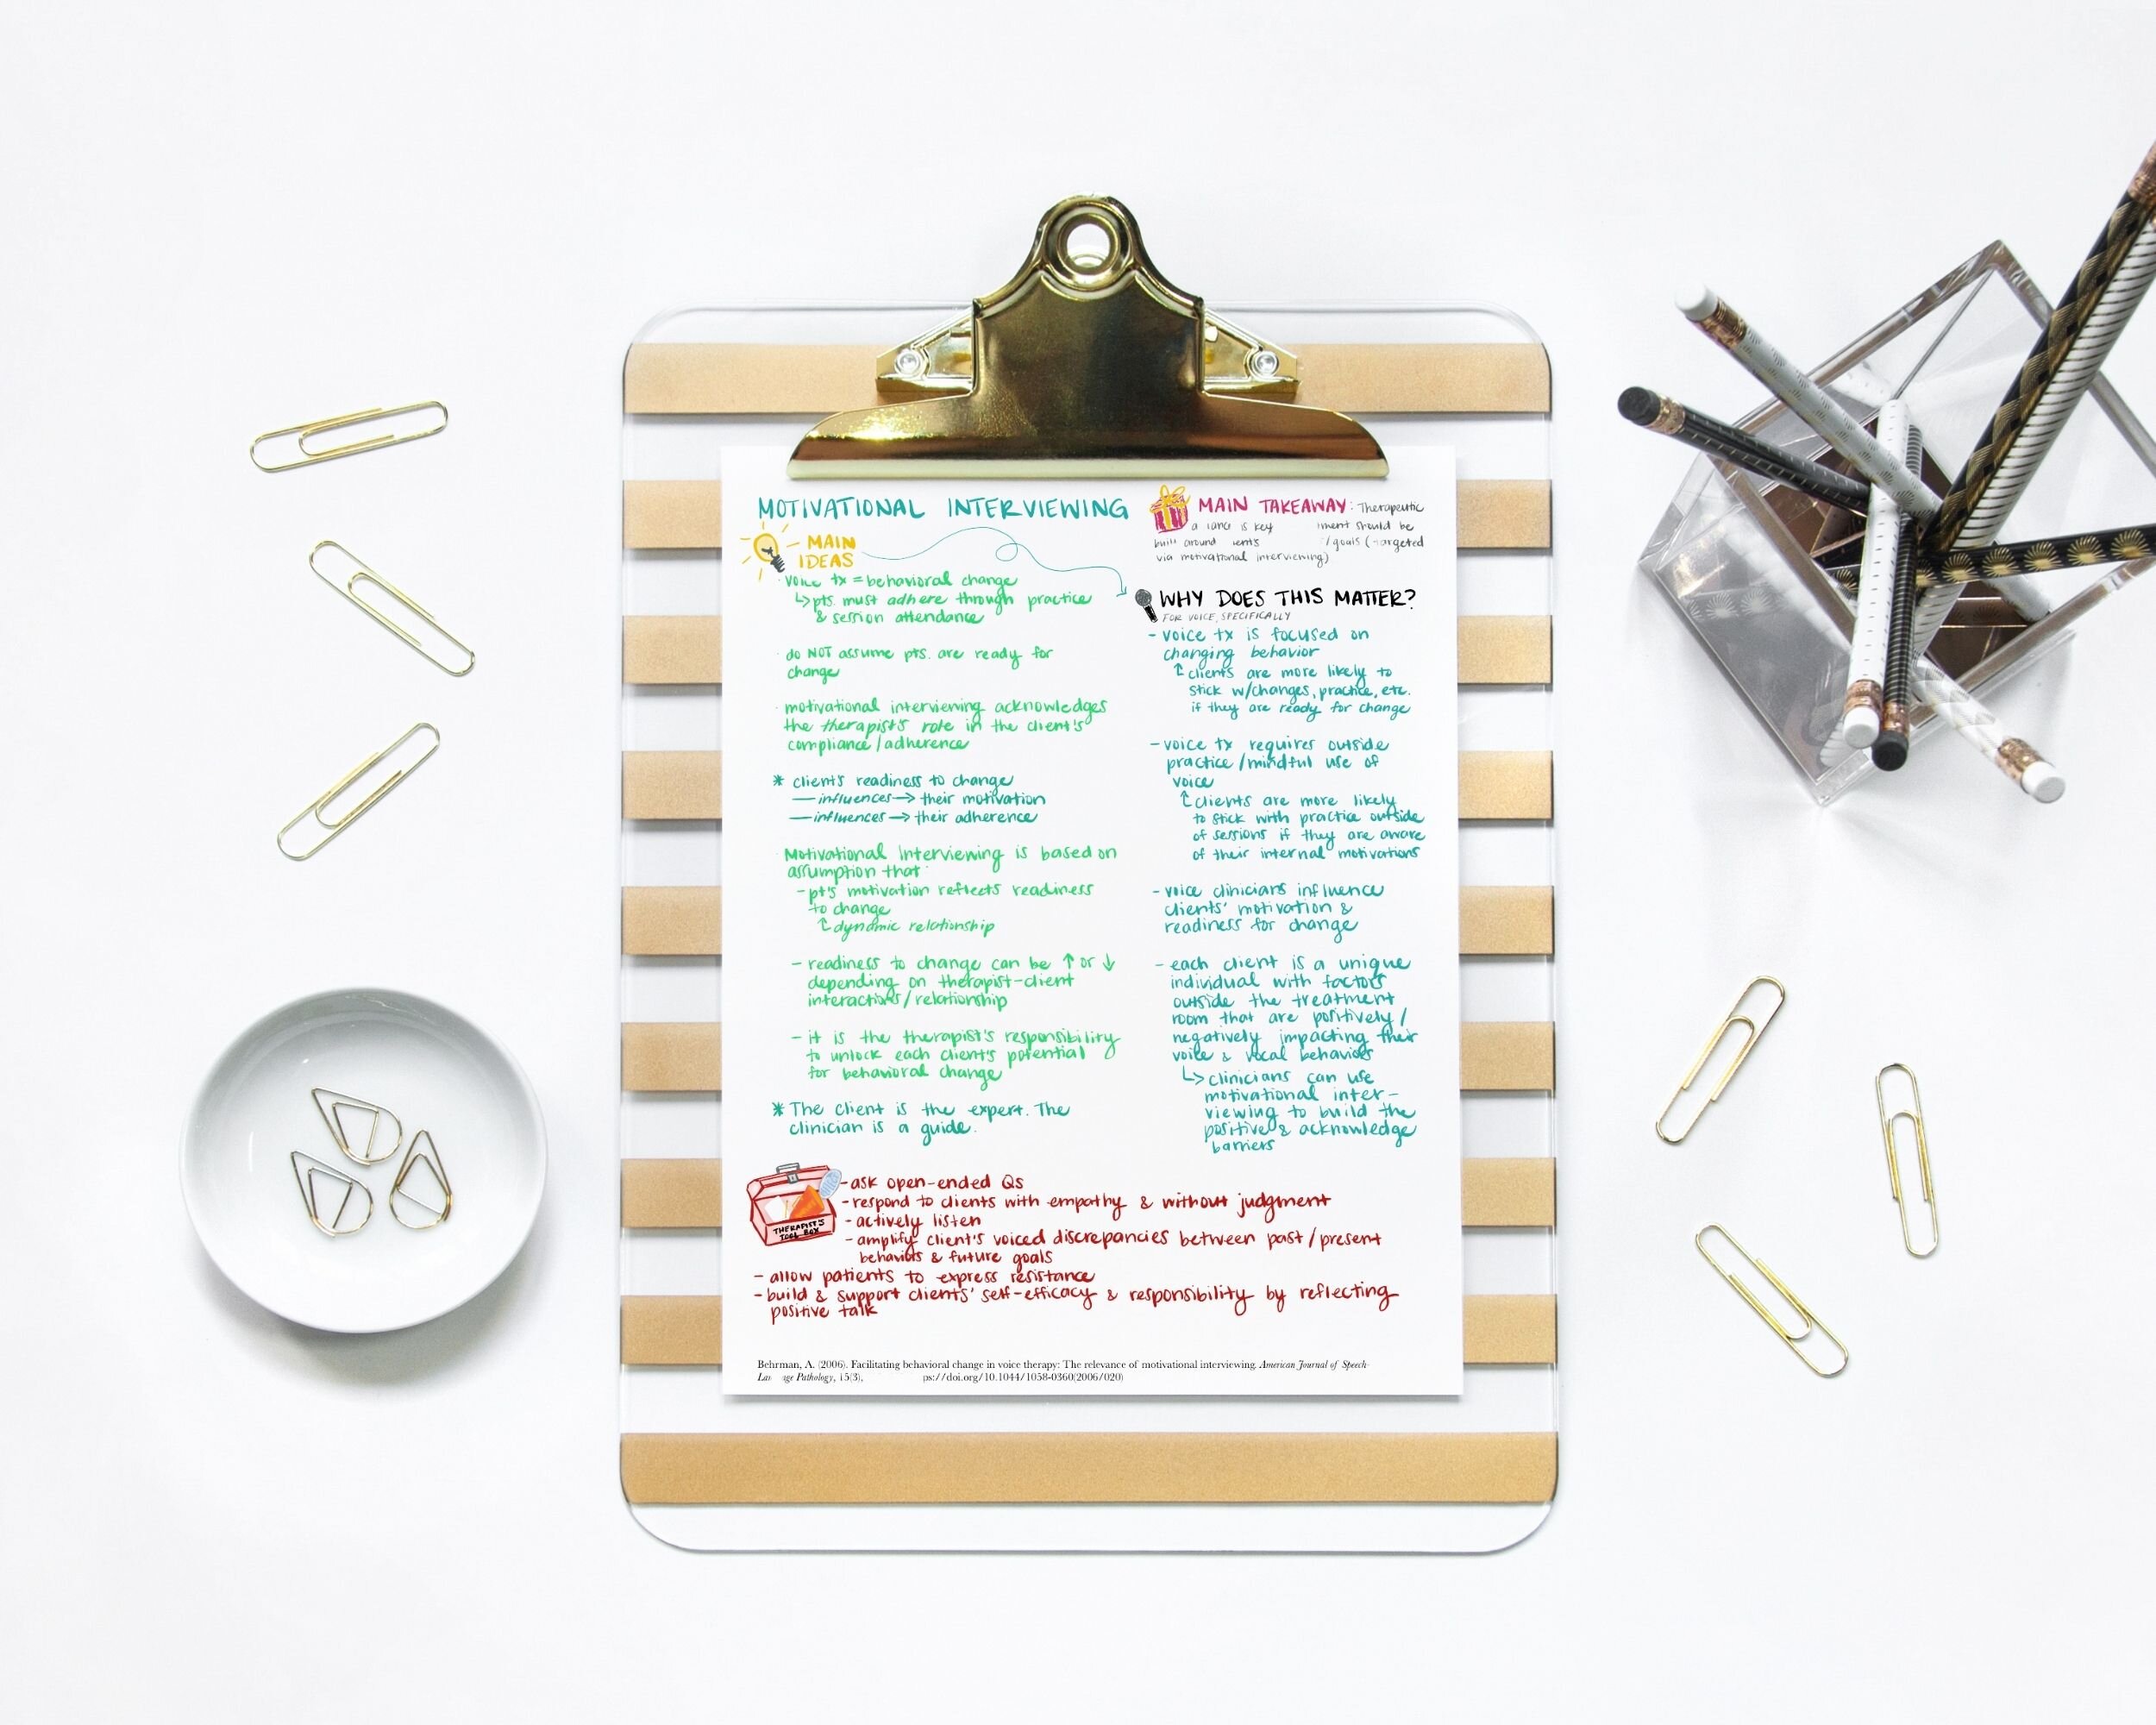 MOTIVATIONAL INTERVIEWING
MAIN
IDEAS
voice tx = behavioral change
↳ pts. must adhere through practice
& session attendance
do NOT assume pts. are ready for
change
motivational interviewing acknowledges
the therapist's role in the client's
compliance/adherence
* client's readiness to change
—influences→ their motivation
—influences→ their adherence
Motivational Interviewing is based on
assumption that
- pt's motivation reflects readiness
to change
↳ dynamic relationship
- readiness to change can be ↑ or ↓
depending on therapist-client
interactions/relationship
- it is the therapist's responsibility
to unlock each client's potential
for behavioral change
* The client is the expert. The
clinician is a guide.
MAIN TAKEAWAY: Therapeutic
is key should be
built around /goals (targeted
via motivational interviewing)
WHY DOES THIS MATTER?
FOR VOICE, SPECIFICALLY
- voice tx is focused on
changing behavior
↳ clients are more likely to
stick w/changes, practice, etc.
if they are ready for change
- voice tx requires outside
practice/mindful use of
voice
↳ clients are more likely
to stick with practice outside
of sessions if they are aware
of their internal motivations
- voice clinicians influence
clients' motivation &
readiness for change
- each client is a unique
individual with factors
outside the treatment
room that are positively/
negatively impacting their
voice & vocal behaviors
↳ clinicians can use
motivational inter-
viewing to build the
positive & acknowledge
barriers
THERAPIST'S
TOOL BOX
- ask open-ended Qs
- respond to clients with empathy & without judgment
- actively listen
- amplify client's voiced discrepancies between past/present
behaviors & future goals
- allow patients to express resistance
- build & support clients' self-efficacy & responsibility by reflecting
positive talk
Behrman, A. (2006). Facilitating behavioral change in voice therapy: The relevance of motivational interviewing. American Journal of Speech-
Pathology, 15(3), ps://doi.org/10.1044/1058-0360(2006/020)